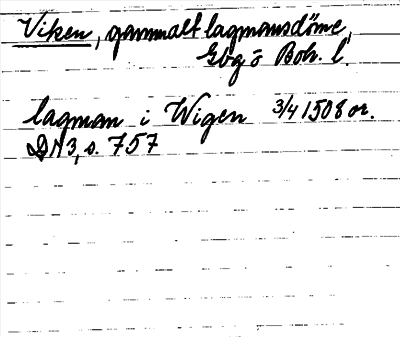 Viken, gammalt lagmansdöme,
Gbg o Boh. l.
lagman i Wigen 3/4 1508 or.
DN 3, s. 757